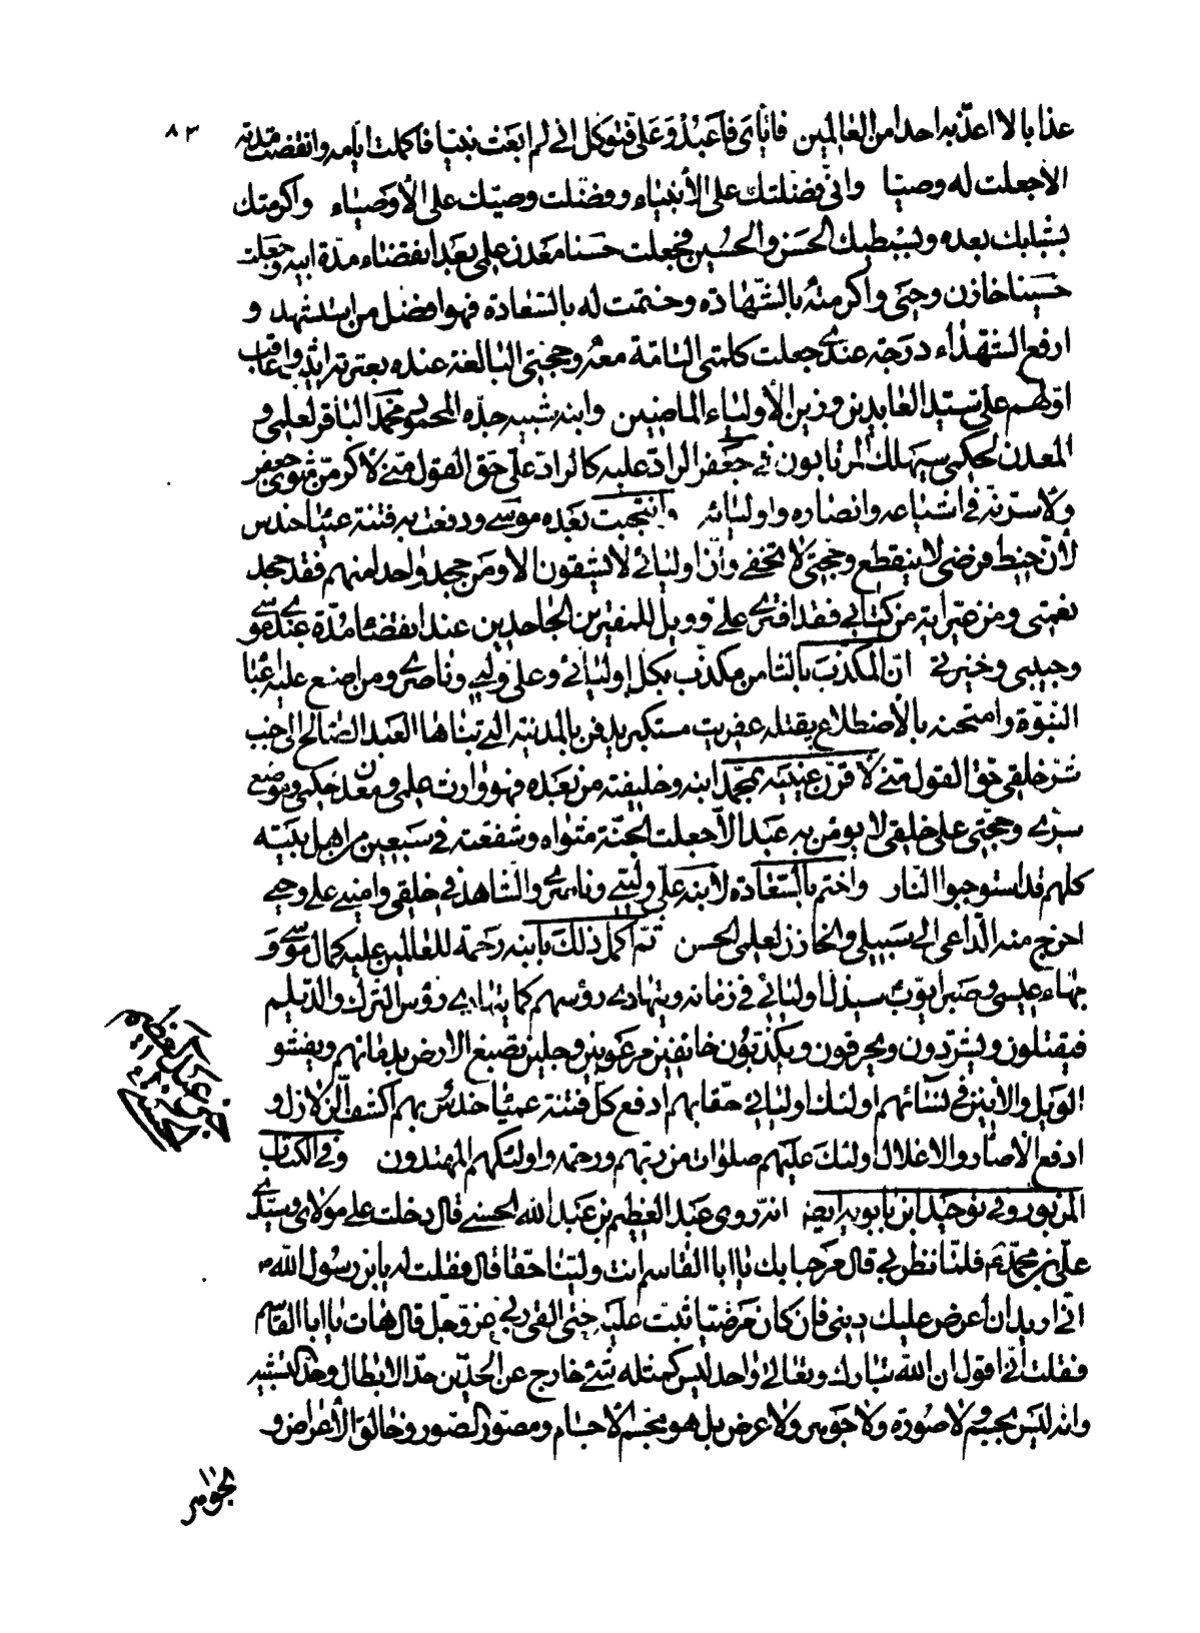 ٨٣
عذابا لا اعذّبه احدا من العالمين فايّاى فاعبد وعلىّ فتوكل انى لم ابعث نبيّا فاكملت ايّامه وانقضت مدّته
الاّ جعلت له وصيّا وانى فضّلتك على الأنبياء وفضّلت وصيّك على الأوصياء واكرمتك
بشبليك بعده وبسبطيك الحسن والحسين فجعلت حسنا معدن علمى بعد انقضاء مدّة ابيه وجعلت
حسينا خازن وحيى واكرمته بالشّهادة وختمت له بالسّعادة فهو افضل من استشهد و
ارفع الشّهداء درجة عندى جعلت كلمتى التامّة معه وحجّتى البالغة عنده بعترته اثيب واعاقب
اوّلهم علىّ سيّد العابدين وزين الأولياء الماضين وابنه شبيه جدّه المحمود محمّد الباقر لعلمى و
المعدن لحكمى سيهلك المرتابون فى جعفر الرادّ عليه كالرادّ علىّ حقّ القول منّى لأكرمنّ مثوى جعفر
ولأسرّنّه فى اشياعه وانصاره واوليائه وانتجبت بعده موسى فتنة عمياء حندس
لأنّ خيط فرضى لا ينقطع وحجّتى لا تخفى وأنّ اوليائى لا يشقون الا ومن جحد واحدا منهم فقد جحد
نعمتى ومن غيّر اية من كتابى فقد افترى علىّ وويل للمفترين الجاحدين عند انقضاء مدّة عبدى موسى
وحبيبى وخيرتى انّ المكذّب بالثامن مكذّب بكل اوليائى وعلىّ وليى وناصرى ومن اضع عليه اعباء
النبوّة وامتحنه بالأضطلاع يقتله عفريت مستكبر يدفن بالمدينة التى بناها العبد الصّالح الى جنب
شرّ خلقى حقّ القول منّى لأقرّن عينيه بمحمّد ابنه وخليفته من بعده فهو وارث علمى ومعدن حكمى وموضع
سرّى وحجّتى على خلقى لا يؤمن به عبد الاّ جعلت الجنّة مثواه وشفّعته فى سبعين من اهل بيته
كلهم قد استوجبوا النار واختم بالسّعادة لابنه علىّ وليّى وناصرى والشّاهد فى خلقى وامينى على وحيى
اخرج منه الدّاعى الى سبيلى والخازن لعلمى الحسن ثمّ اكمل ذلك بابنه رحمة للعالمين عليه كمال موسى و
بهاء عيسى وصبر ايّوب سيذلّ اوليائى فى زمانه ويتهادى رؤسهم كما يتهادى رؤس الترك والدّيلم
فيقتلون ويشرّدون ويحرقون ويكذّبون خائفين مرعوبين وجلين تصبغ الارض بدمائهم ويفشو
الويل والانين فى نسائهم اولئك اوليائى حقّا بهم ادفع كلّ فتنة عمياء حندس بهم اكشف الزّلازل و
ادفع الأصار والاغلال اولئك عليهم صلوات من ربّهم ورحمة واولئك هم المهتدون وفى الكتاب
المزبور وفى توحيد ابن بابويه ايضا انّه روى عبد العظيم بن عبد الله الحسنى قال دخلت على مولاى وسيّدى
علىّ بن محمّد فلمّا نظر بى قال مرحبا بك يا ابا القاسم أنت وليّنا حقّا قال فقلت له يابن رسول الله
انّى اريد ان أعرض عليك دينى فان كان مرضيّا ثبت عليه حتّى القى ربّى عزّ وجلّ قال هات يا ابا القاسم
فقلت انّى اقول ان الله تبارك وتعالى واحد ليس كمثله شئ خارج عن الحدّين حدّ الابطال وحدّ التشبيه
وانه ليس بجسم ولا صورة ولا جوهر ولا عرض بل هو مجسّم الأجسام ومصوّر الصّور وخالق الأعراض و
الجواهر